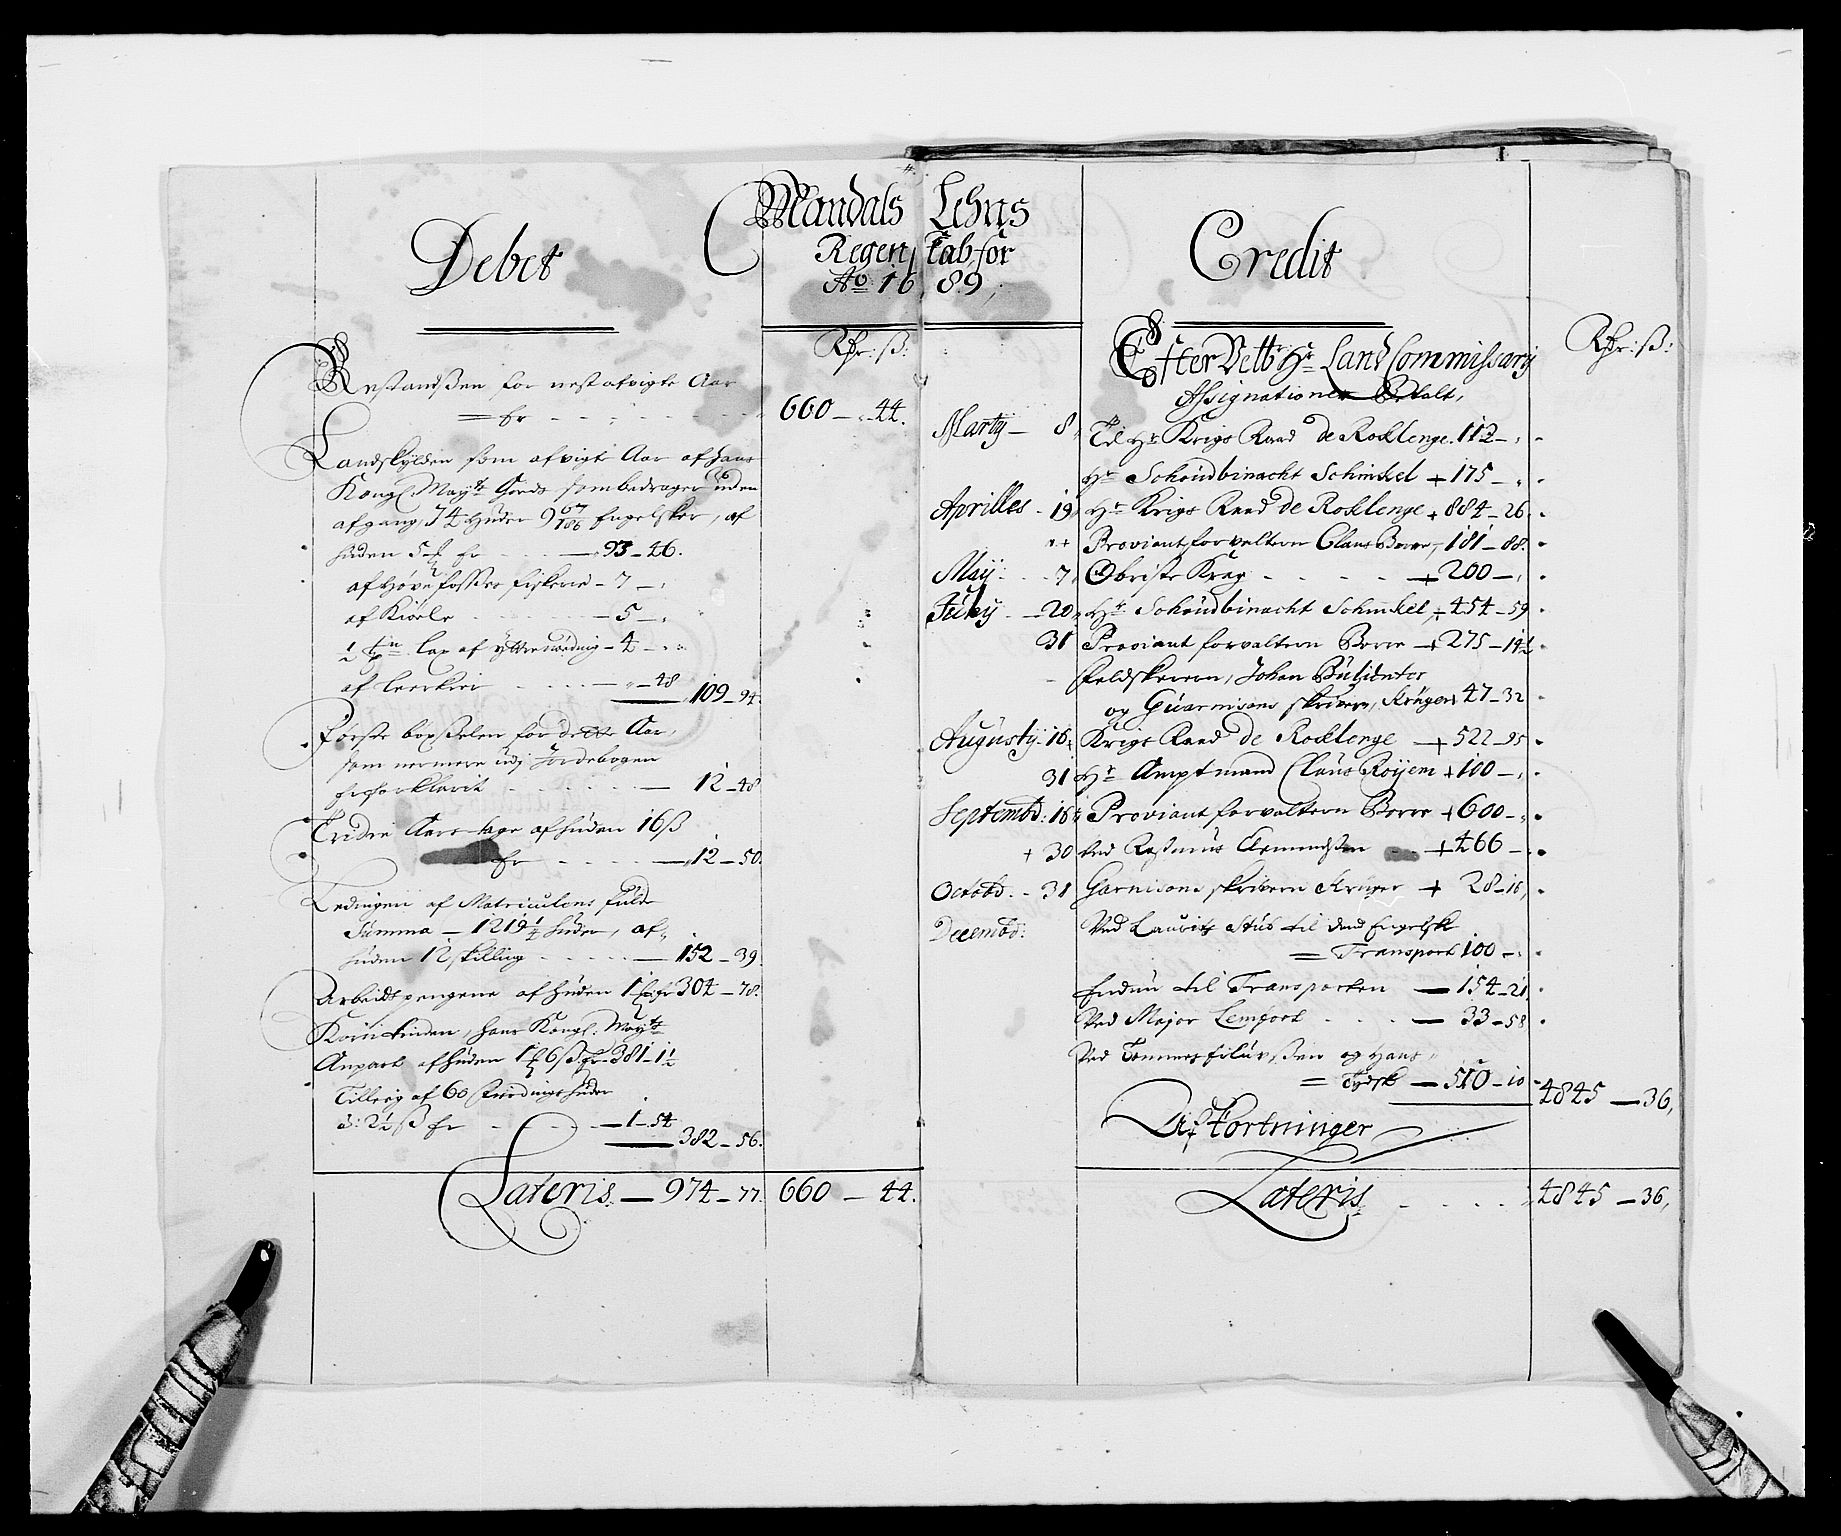 Mandals Lehns
Regenskab for
Ao: 1689;
Debet
Rdr: ß:
Restandsen for nest afvigte Aar
= Er - - - 660 - 44.
Landskylden som afvigte Aar af hans
Kongl: Maytz Gords som bedrager uden
afgang, 74 Huder 9 67/186 Engelsker, af
huden 5 ort Er - - - 93 - 46.
af Høyefosses fiskerie - 7 -
af Kiøele - - - 5 -
af Ytterøerdnig - 4 -
af Leerkier - - - 48
109 - 94.
Første bøxselen for dette Aar,
som nermere udj Jordebogen
Er forklarit - - - 12 - 48
Tredie Aars tage af huden 16 ß
Er - - - 12 - 50.
Ledingen af Matriculens fulde
Summa - 1219 1/4 huder, af
huden 12 skilling - - - 152 - 39.
Arbeidspengene af huden 1 ort Er 304 - 78.
Korntienden, hans Kongl: Maytz
Anpart af huden 1 ort 6 ß Er - 381 - 1 1/2
Tilleeg af 60 huder
a: 2 1/2 ß Er - - - 1 - 54
382 - 56.
Lateris - 974 - 77. 660 - 44.
Credit
Rdr: ß:
Efter Velbr Hr Land Commissarij
Assignationer Betalt,
Martij - 8 Til Hr Krigs Raad de Roklenge. 112 -
Hr Schoudbinacht Schinkel + 175 -
Aprilles - 19 Hr Krigs Raad de Roklenge + 884 - 26.
Proviantforvaltern Claus Borre - 181 - 88.
Maij - 7 Obriste Krag - - - + 200 -
Julij - 20 Hr Schoudbinacht Schinkel, + 454 - 59
31 Proviant forvaltern Borre + 275 - 14 1/2
feldskerern, Johan
og Guarnisons skrivern, Krüger 47 - 32
Augustij - 16 Krigs Raad de Roklenge + 522 - 95
31 Hr Amptmand Claus Røyem + 100 -
Septembr: 16 Proviant forvaltern Borre + 600 -
+ 30 ved Rasmus Clemmedsen + 466 -
Octobr. - 31 Garnisons skrivern Krüger + 28 - 16
Decembr: Ved Lauritz Stub til dend Engelske
= Transport 100 -
Endnu til Transporten - 154 - 21
Ved Major Lemfort - - - 33 - 58
Ved Tommes og Hans
= Tydsk - 510 - 10 4845 - 36,
Afkortninger
Lateris - - - 4845 - 36,